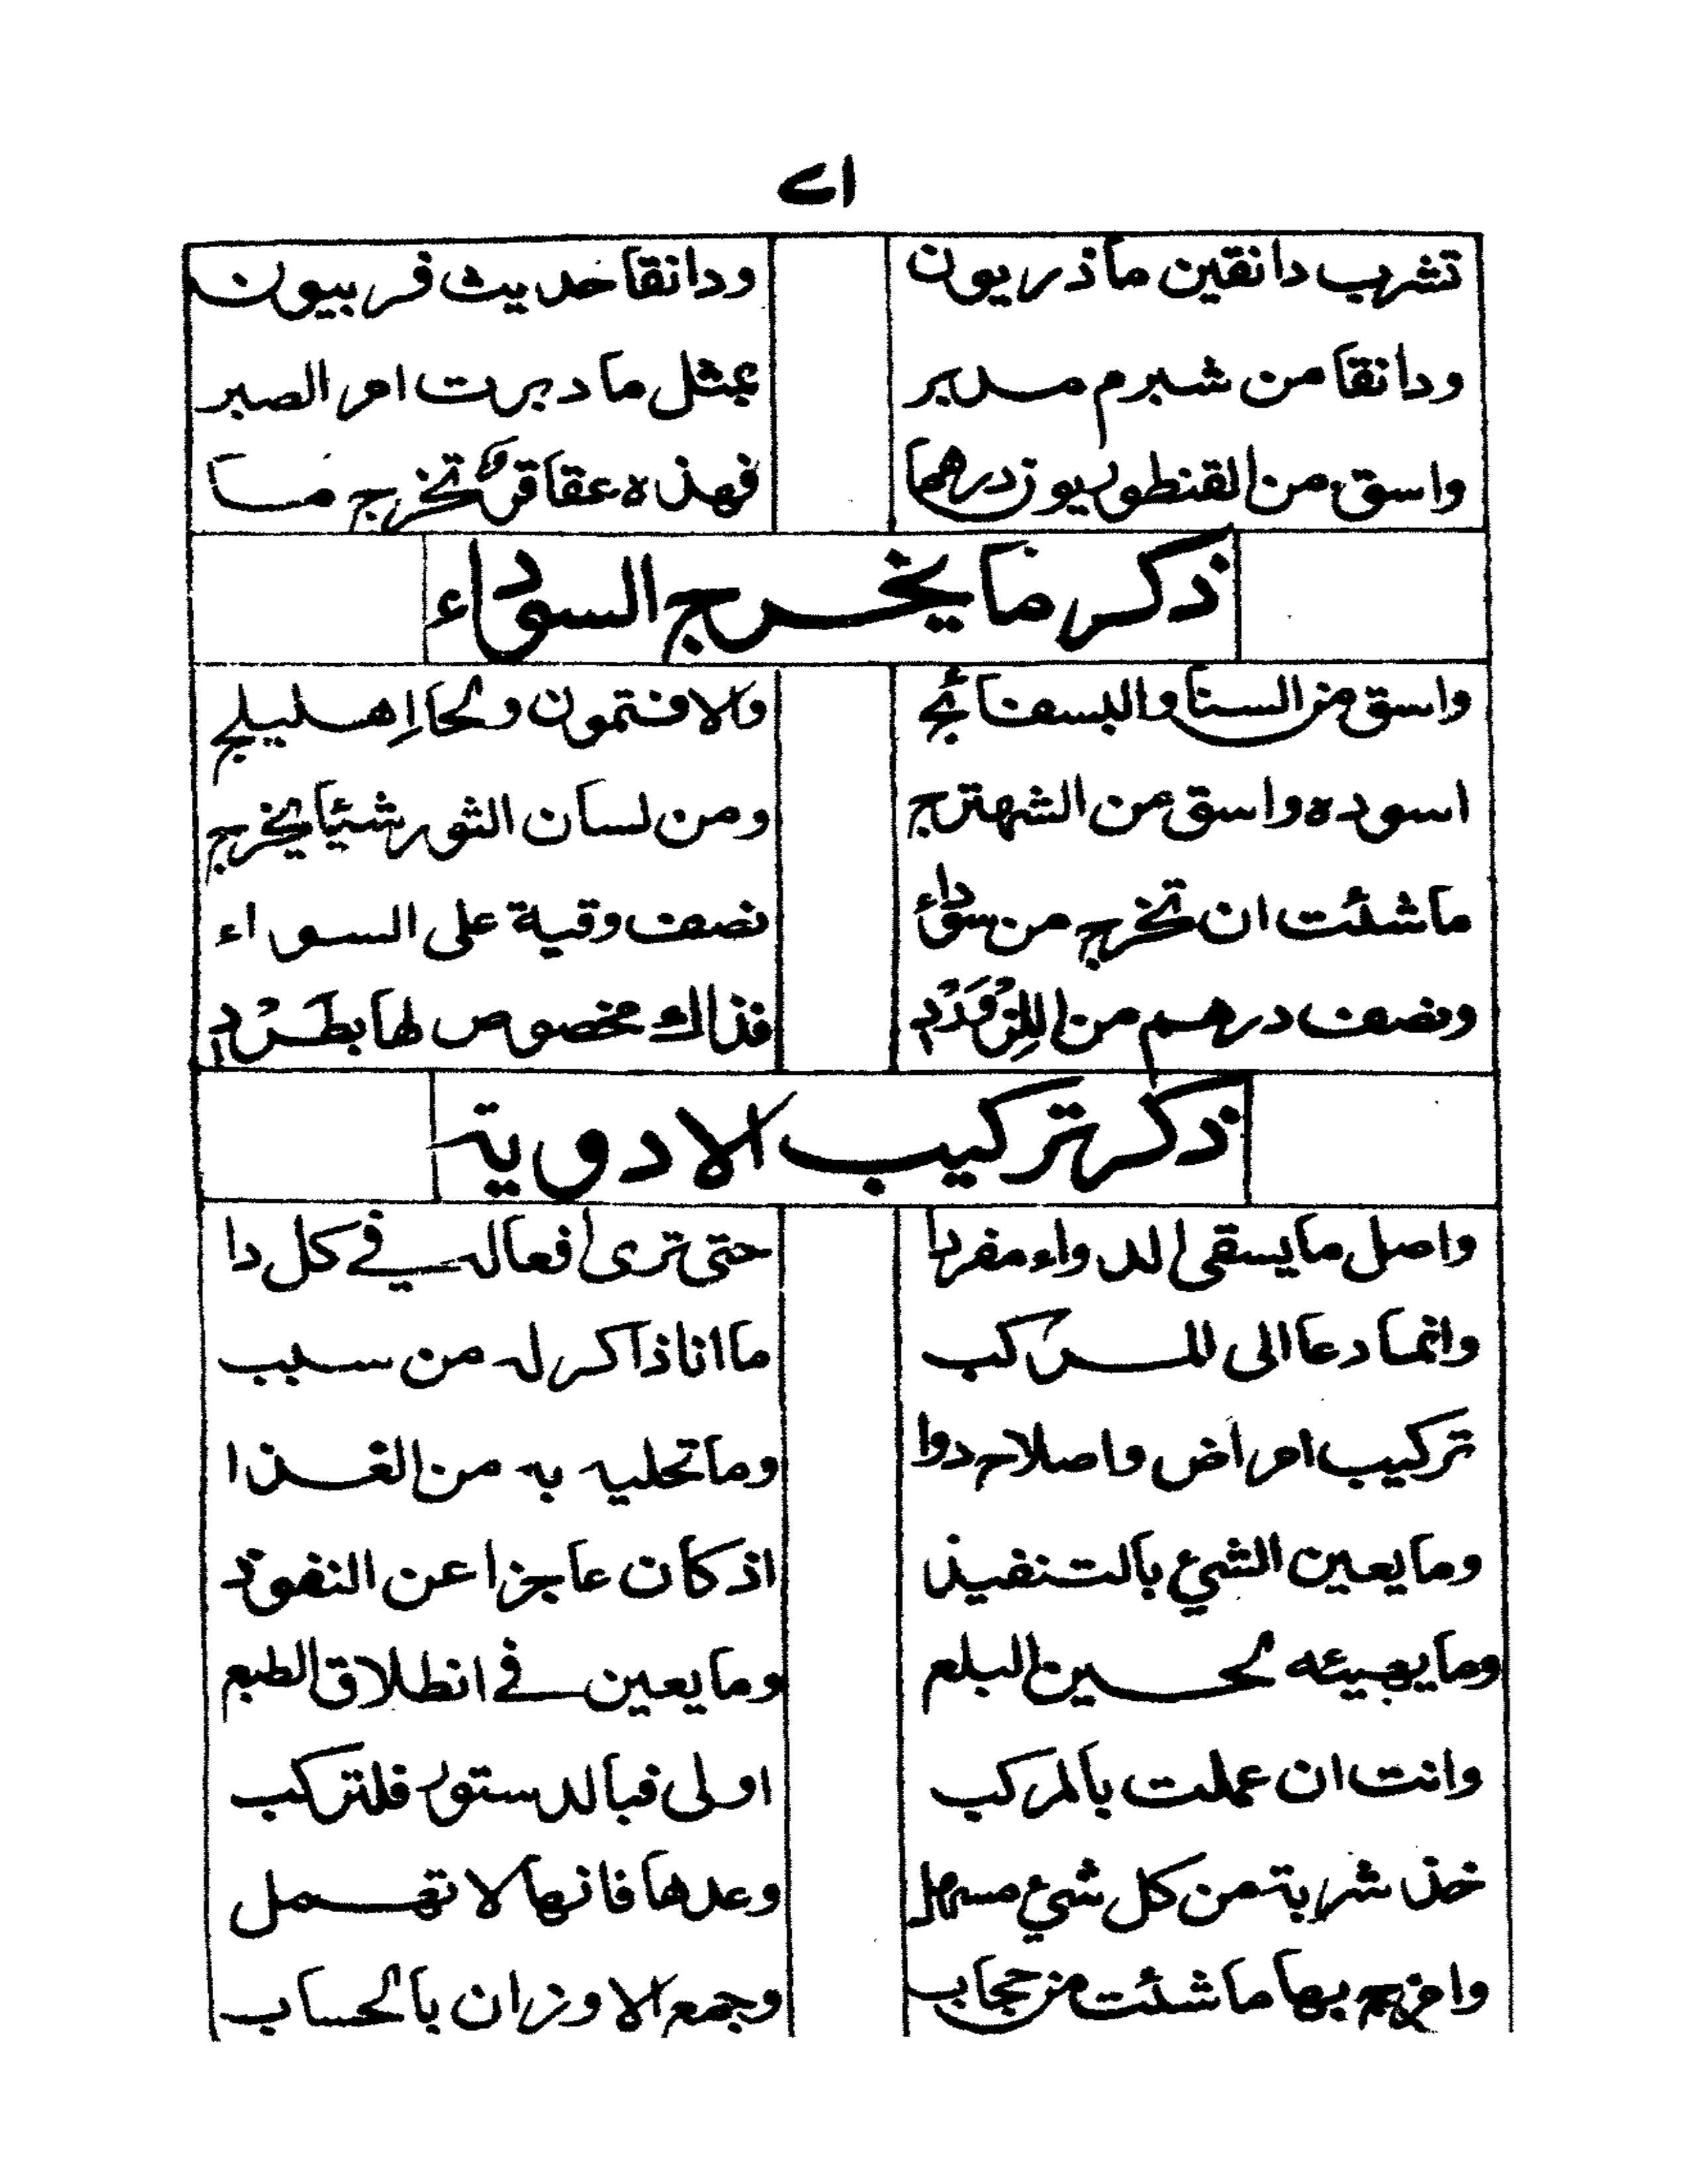 ٨١
تشرب دانقين ماذريون ودانقا حديث فربيون
ودانقا من شبرم مدبر بمثل ما دبرت امر الصبر
واسق من القنطوريون درهما فهذه عقاقر تخرج ما
ذكر ما يخرج السوداء
واسق من السنا والبسفائج والافتمون ولحا اهليلج
اسوده واسق من الشهترج ومن لسان الثور شيئا يخرج
ما شئت ان تخرج من سوداء نصف وقية على السواء
ونصف درهم من اللازورد فذاك مخصوص لها بطرد
ذكر تركيب الادوية
واصل ما يسقى الدواء مفردا حتى ترى افعاله في كل دا
وانما دعا الى المركب ما انا ذاكر له من سبب
تركيب امراض واصلاح دوا وما تحليه به من الغذا
وما يعين الشئ بالتنفيذ اذ كان عاجزا عن النفوذ
وما يهيئه لحين البلع وما يعين في انطلاق الطبع
وانت ان عملت بالمركب اولى فبالدستور فلتركب
خذ شربة من كل شئ مسهل وعدها فانها لا تهمل
وامزج بها ما شئت من حجاب وجمع الاوزان بالحساب